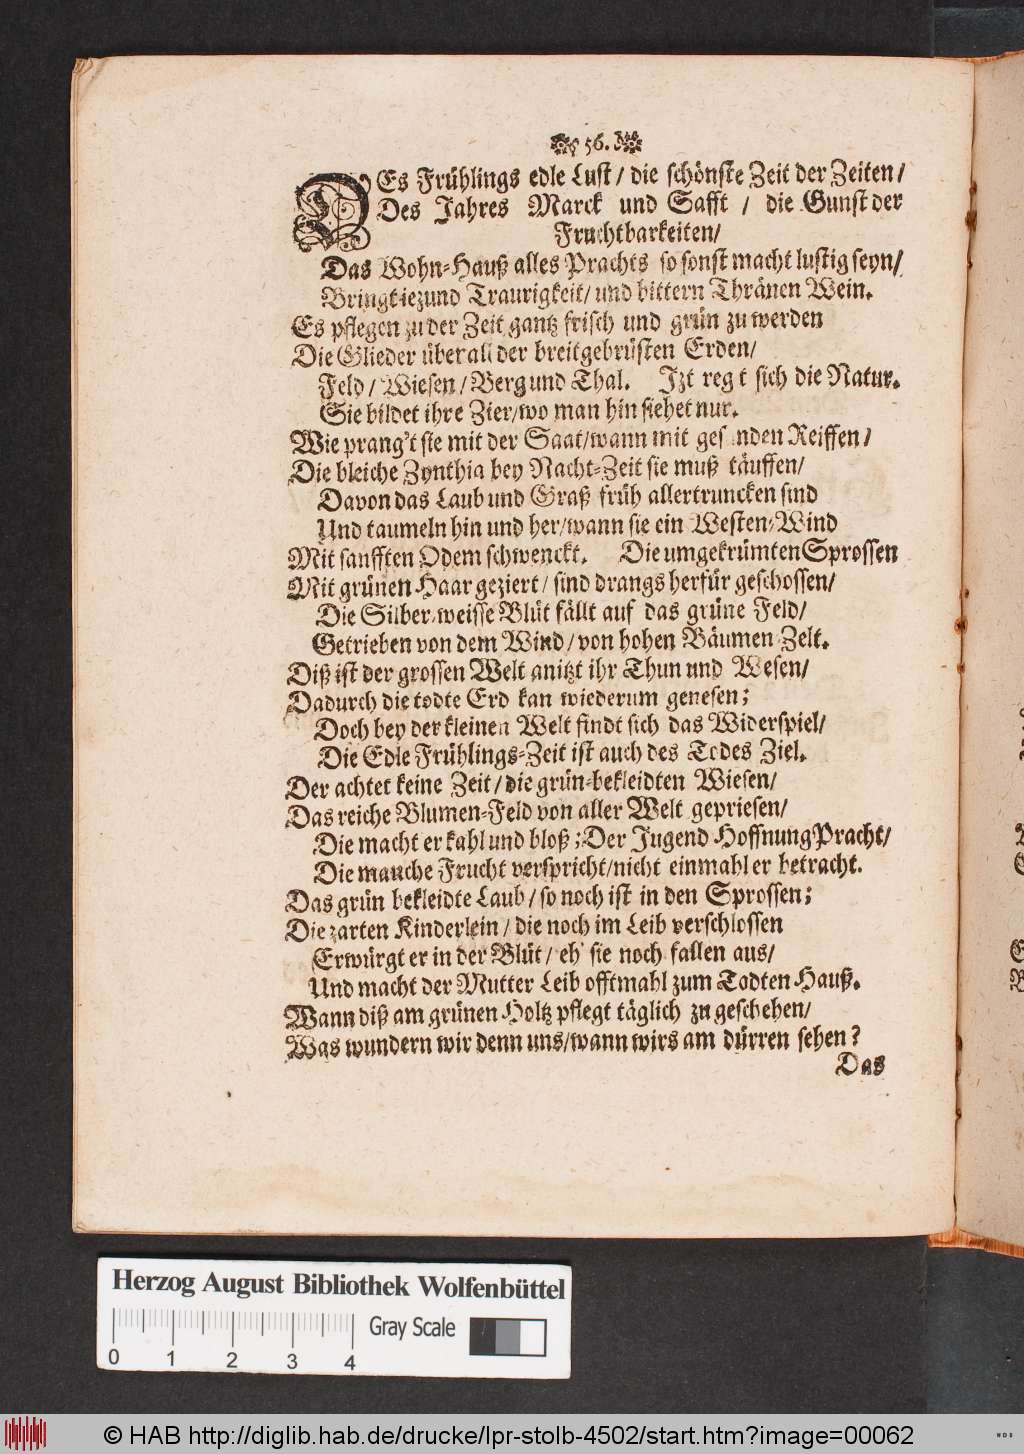 56.
DEs Frühlings edle Lust / die schönste Zeit der Zeiten /
Des Jahres Marck und Safft / die Gunst der
Fruchtbarkeiten /
Das Wohn-Hauß alles Prachts so sonst macht lustig seyn /
Bringt iezund Traurigkeit / und bittern Thränen Wein.
Es pflegen zu der Zeit gantz frisch und grün zu werden
Die Glieder überall der breitgebrüsten Erden /
Feld / Wiesen / Berg und Thal. Jzt regt sich die Natur.
Sie bildet ihre Zier / wo man hin siehet nur.
Wie prang't sie mit der Saat / wann mit gesunden Reiffen /
Die bleiche Zynthia bey Nacht-Zeit sie muß täuffen /
Davon das Laub und Graß früh allertruncken sind
Und taumeln hin und her / wann sie ein Westen-Wind
Mit sanfften Odem schwenckt. Die umgekrümten Sprossen
Mit grünen Haar geziert / sind drangs herfür geschossen /
Die Silber-weisse Blüt fällt auf das grüne Feld /
Getrieben von dem Wind / von hohen Bäumen Zelt.
Diß ist der grossen Welt anitzt ihr Thun und Wesen /
Dadurch die todte Erd kan wiederum genesen;
Doch bey der kleinen Welt findt sich das Widerspiel /
Die Edle Frühlings-Zeit ist auch des Todes Ziel.
Der achtet keine Zeit / die grün-bekleidten Wiesen /
Das reiche Blumen-Feld von aller Welt gepriesen /
Die macht er kahl und bloß; Der Jugend Hoffnung Pracht /
Die manche Frucht verspricht / nicht einmahl er betracht.
Das grün bekleidte Laub / so noch ist in den Sprossen;
Die zarten Kinderlein / die noch im Leib verschlossen
Erwürgt er in der Blüt / eh' sie noch fallen aus /
Und macht der Mutter Leib offtmahl zum Todten Hauß.
Wann diß am grünen Holtz pflegt täglich zu geschehen /
Was wundern wir denn uns / wann wirs am dürren sehen?
Das
Herzog August Bibliothek Wolfenbüttel
0 1 2 3 4
Gray Scale
© HAB http://diglib.hab.de/drucke/lpr-stolb-4502/start.htm?image=00062